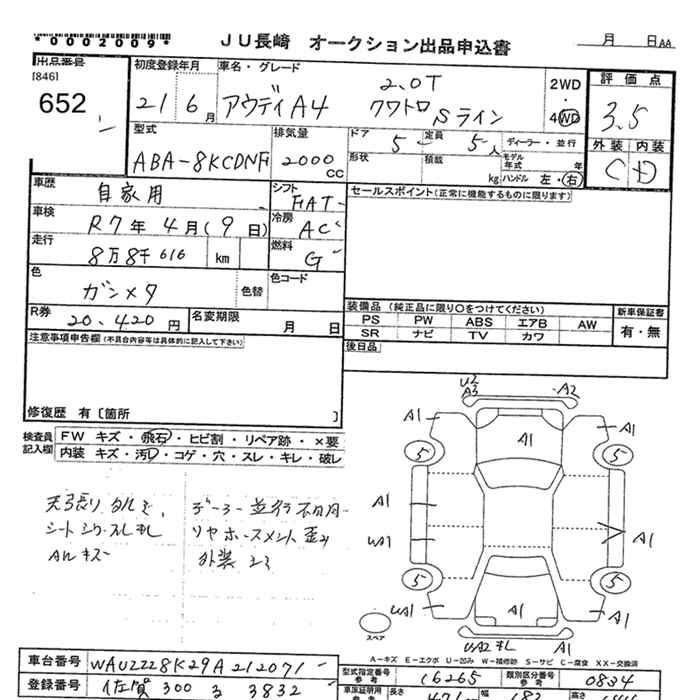 *0002009* JU長崎 オークション出品申込書 月 日AA
出品番号 [846] 652
初度登録年月 21年 6月
車名・グレード アウディA4 2.0T クワトロ Sライン
2WD・4WD
評価点 3.5
外装 C 内装 D
型式 ABA-8KCDNF
排気量 2000 CC
ドア 5 定員 5人 ディーラー・並行
形状 積載 kg モデル年式 年 ハンドル 左・右
車歴 自家用
シフト FAT
セールスポイント(正常に機能するものに限ります)
車検 R7年 4月(9日)
冷房 AC
走行 8万8千616 km
燃料 G
色 ガンメタ 色替 色コード
R券 20,420円 名変期限 月 日
装備品 (純正品に限り○をつけてください) 新車保証書
PS PW ABS エアB AW 有・無
SR ナビ TV カワ
後日品
注意事項申告欄(不具合内容等は具体的に記入して下さい)
修復歴 有〔箇所 〕
検査員記入欄 FW キズ・飛石・ヒビ割・リペア跡・×要
内装 キズ・汚レ・コゲ・穴・スレ・キレ・破レ
天張り タルミ
シート シワ・スレ
AW キズ
ディーラー 並行 不明
リヤ ホースメント 歪み
外装
U2 A3 A2
A1 A1 A1
5 5
A1
UA1 A1
5 5
UA1 A1 A1
スペア
UA2
A-キズ E-エクボ U-凹み W-補修跡 S-サビ C-腐食 XX-交換済
車台番号 WAUZZZ8K29A212071
型式指定番号 参考 16265 類別区分番号 参考 0834
登録番号 佐賀 300 る 3832
車庫証明用 長さ 471 幅 182 高さ